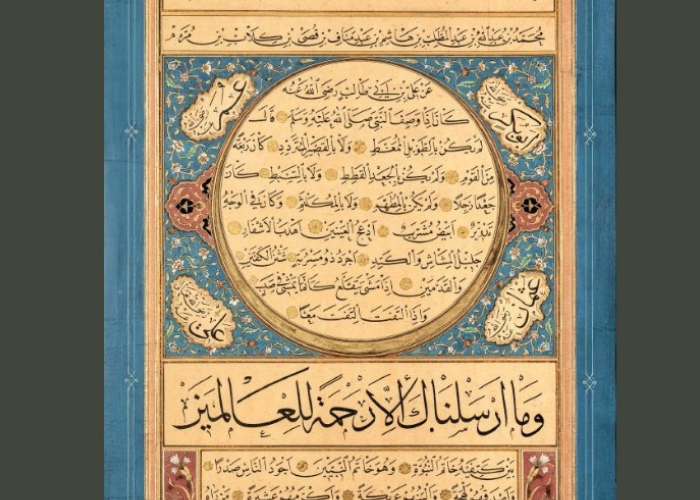 محمد بن عبدالله بن عبدالمطلب بن هاشم بن عبد مناف بن قصي بن كلاب بن مرة
عن علي بن ابي طالب رضي الله عنه
كان اذا وصف النبي صلى الله عليه وسلم قال
لم يكن بالطويل الممغط ولا بالقصير المتردد كان ربعة
من القوم ولم يكن بالجعد القطط ولا بالسبط كان
جعدا رجلا ولم يكن بالمطهم ولا بالمكلثم وكان في الوجه
تدوير ابيض مشرب ادعج العينين اهدب الاشفار
جليل المشاش والكتد اجرد ذو مسربة شثن الكفين
والقدمين اذا مشى يتقلع كانما يمشي في صبب
واذا التفت التفت معا
ابو بكر
عمر
عثمان
علي
وما ارسلناك الا رحمة للعالمين
بين كتفيه خاتم النبوة وهو خاتم النبيين اجود الناس صدرا